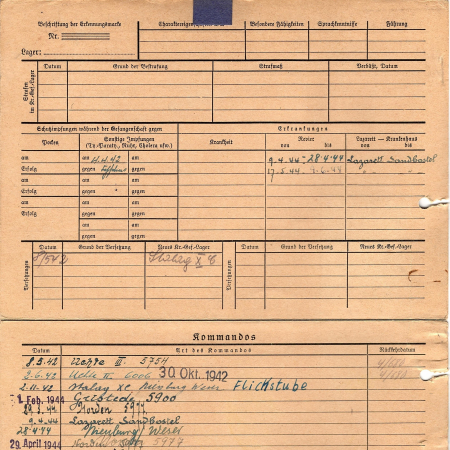 Beschriftung der Erkennungsmarke
Nr.
Lager:
Besondere Fähigkeiten
Sprachkenntnisse
Führung
Strafen im Kr.-Gef.-Lager
Datum
Grund der Bestrafung
Strafmaß
Verbüßt, Datum
Schutzimpfungen während der Gefangenschaft gegen
Erkrankungen
Pocken
Sonstige Impfungen
(Ty.-Paraty., Ruhr, Cholera usw.)
Krankheit
Revier
von bis
Lazarett — Krankenhaus
von bis
am
am 11.4.42
am
9.4.44 - 28.4.44 Lazarett Sandbostel
Erfolg
gegen
gegen
17.5.44
am
am
am
Erfolg
gegen
gegen
am
am
am
Erfolg
gegen
gegen
am
am
gegen
gegen
Versetzungen
Datum
Grund der Versetzung
Neues Kr.-Gef.-Lager
Datum
Grund der Versetzung
Neues Kr.-Gef.-Lager
Stalag X C
Kommandos
Datum
Art des Kommandos
Rückkehrdatum
8.3.42 III 5754
6006 30. Okt. 1942
2.11.42 Stalag XC Nienburg Weser Flickstube
1. Feb. 1944 5900
29.3.44 Norden 5977
9.4.44 Lazarett Sandbostel
28.4.44 Nienburg/Weser
29. April 1944 Norden 5977